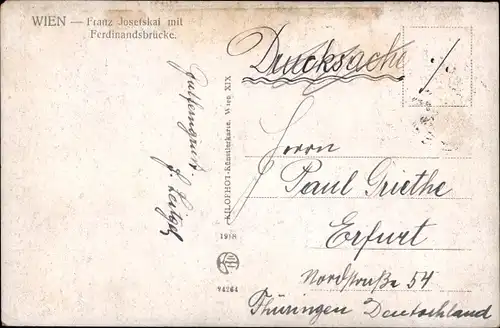 WIEN — Franz Josefskai mit
Ferdinandsbrücke.
Drucksache
Herrn
Paul Griethe
Erfurt
Nordstraße 54
Thüringen Deutschland
KILOPHOT-Künstlerkarte, Wien XIX